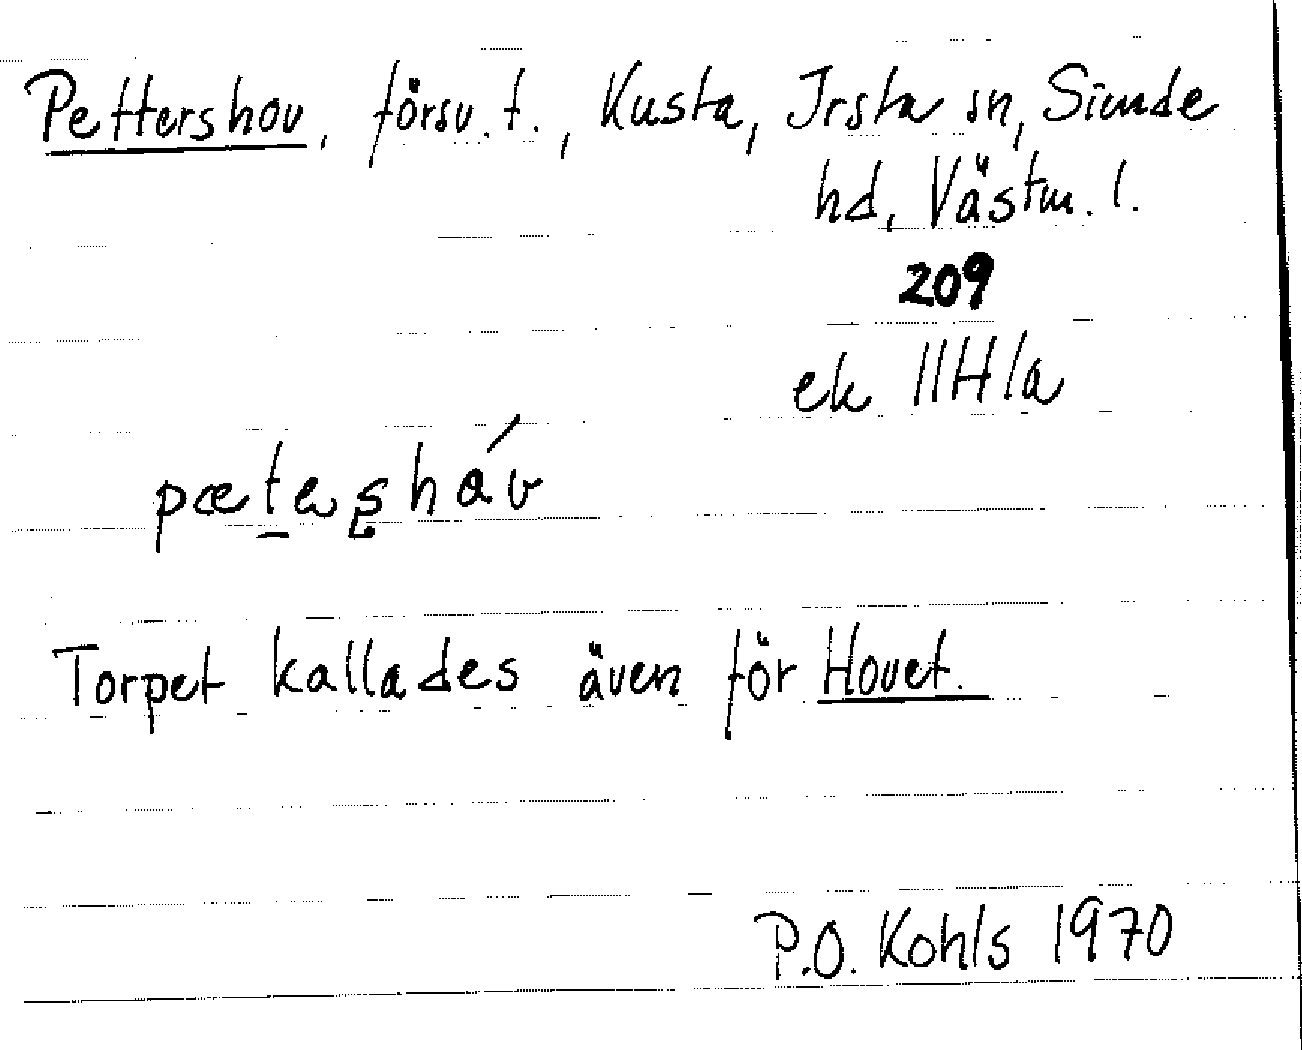 Pettershov, försv. t., Kusta, Irsta sn, Siende
hd, Västm. l.
209
ek 11H1a
pæṯaʂháv
Torpet kallades även för Hovet.
P.O. Kohls 1970